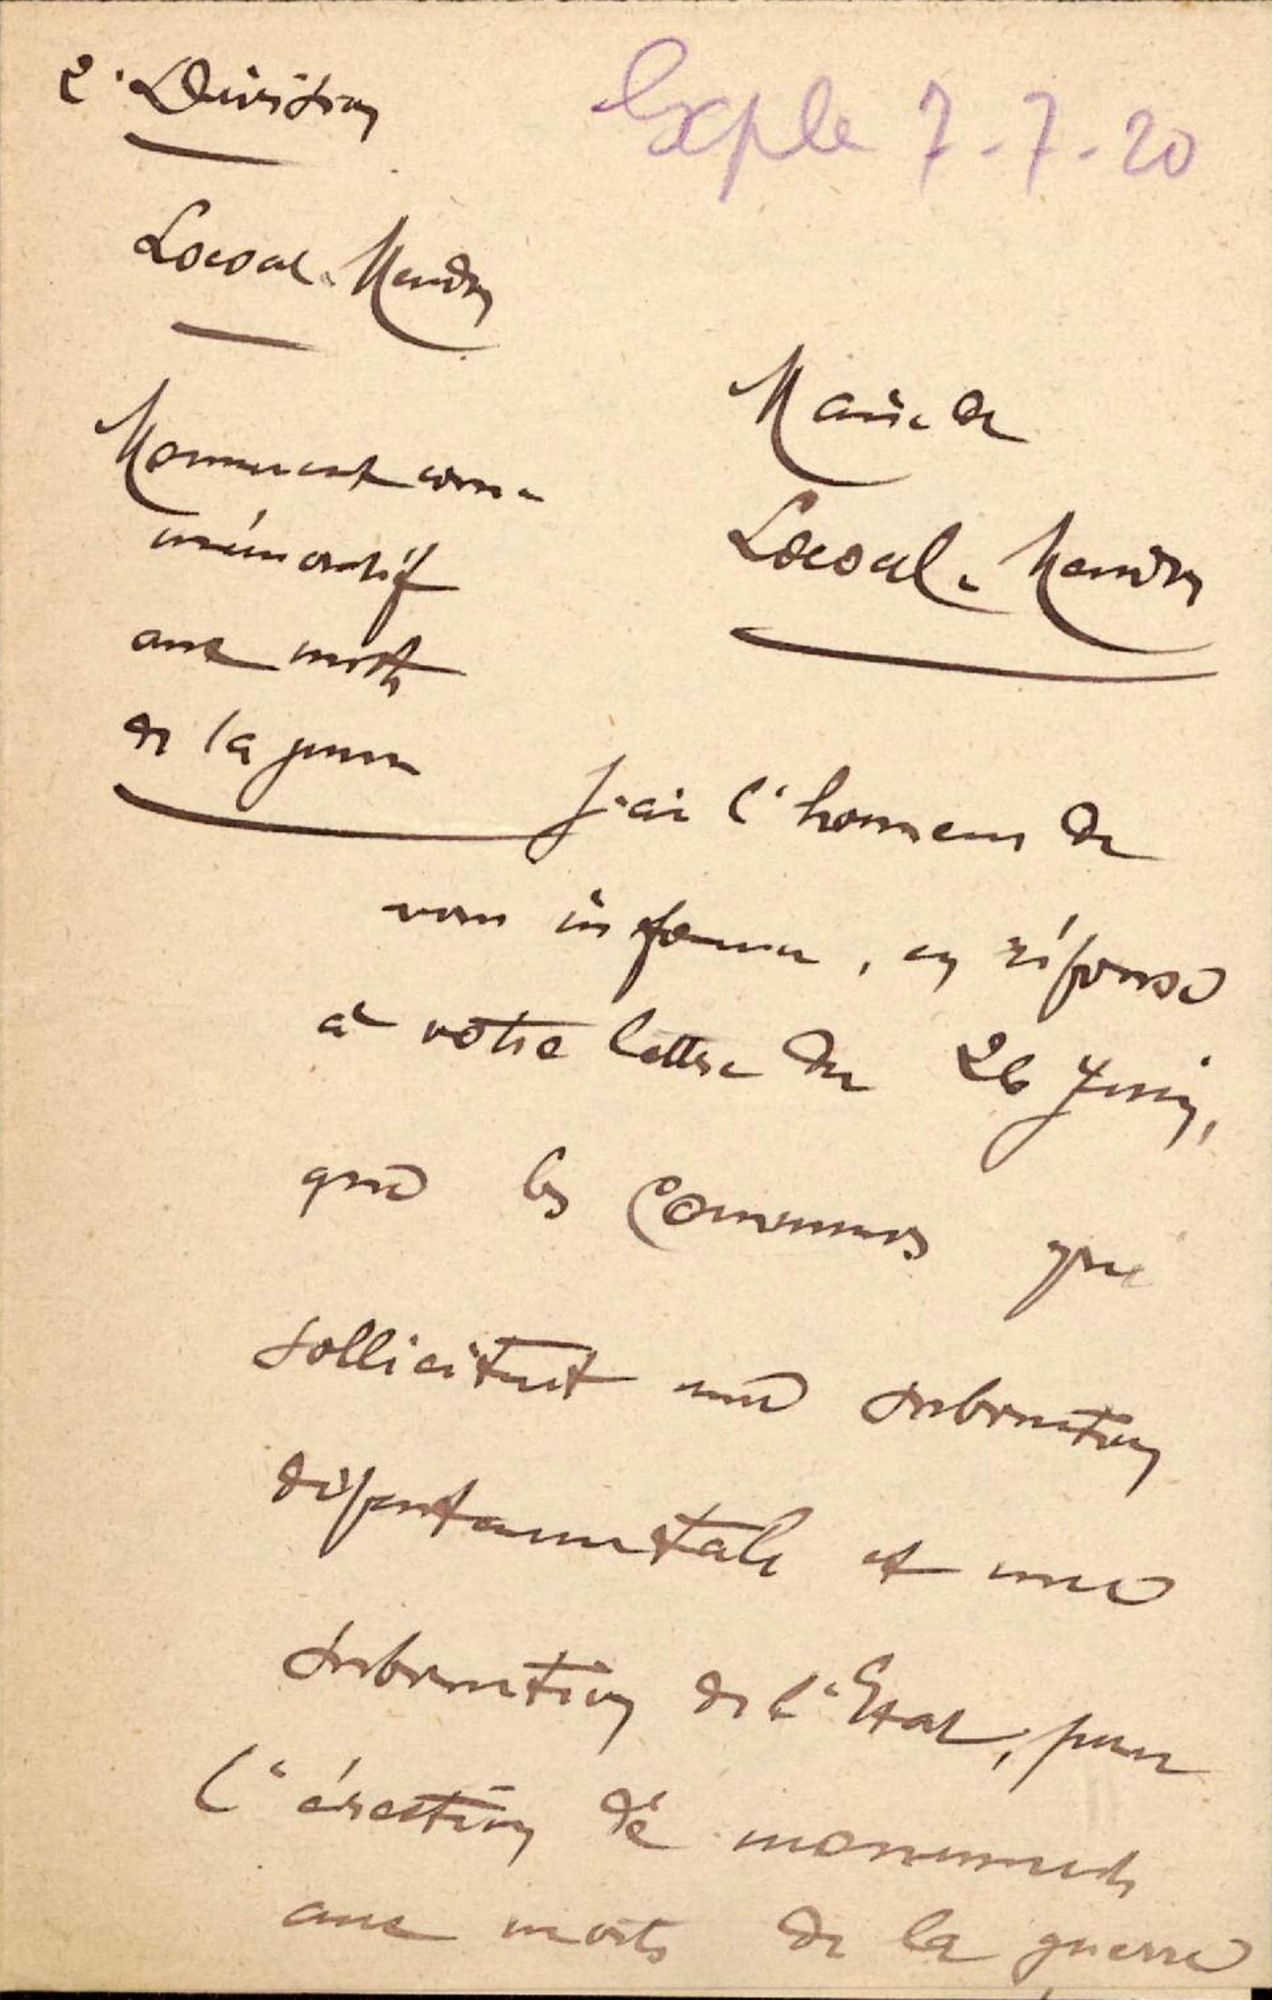 2e Division
Exple 7-7-20
Locoal-Mendon
Maire de
Locoal-Mendon
Monument com-
mémoratif
aux morts
de la guerre
J'ai l'honneur de
vous informer, en réponse
à votre lettre du 26 Juin,
que les Communes qui
sollicitent une subvention
départementale et une
subvention de l'Etat, pour
l'érection de monuments
aux morts de la guerre